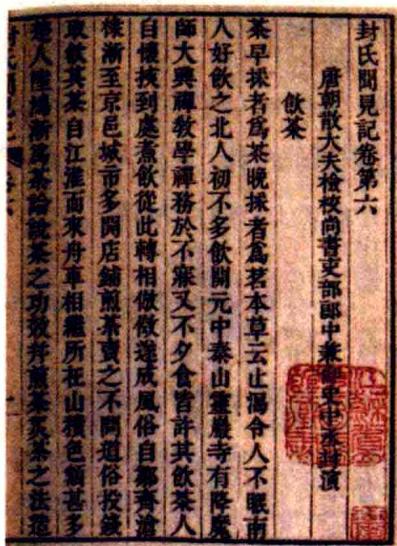 封氏聞見記卷第六
唐朝散大夫檢校尚書吏部郎中兼御史中丞封演
飲茶
茶早採者爲茶晚採者爲茗本草云止渴令人不眠南
人好飲之北人初不多飲開元中泰山靈巖寺有降魔
師大興禪教學禪務於不寐又不夕食皆許其飲茶人
自懷挾到處煮飲從此轉相倣傚遂成風俗自鄒齊滄
棣漸至京邑城市多開店鋪煎茶賣之不問道俗投錢
取飲其茶自江淮而來舟車相繼所在山積色額甚多
楚人陸鴻漸爲茶論說茶之功效并煎茶炙茶之法造